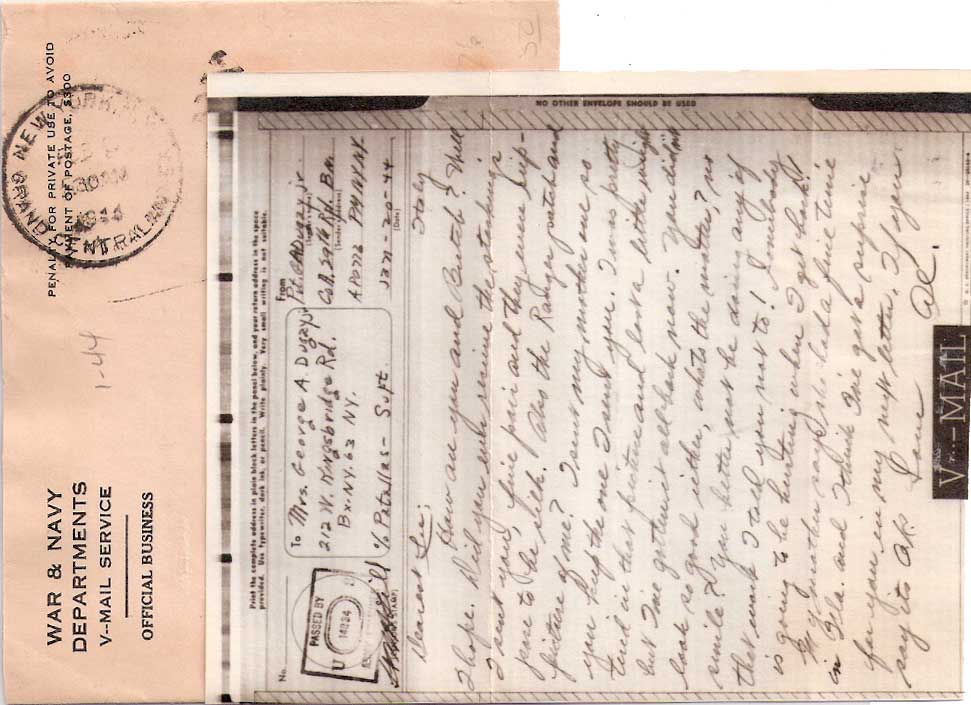 WAR & NAVY
DEPARTMENTS
V--MAIL SERVICE
OFFICIAL BUSINESS
PENALTY FOR PRIVATE USE TO AVOID
PAYMENT OF POSTAGE, $300
NEW YORK, N.
1944
1-44
Print the complete address in plain block letters in the panel below, and your return address in the space
provided. Use typewriter, dark ink, or pencil. Write plainly. Very small writing is not suitable.
No.
PASSED BY
U S
14984
To
Mrs. George A. Dugay Jr
212 W. Kingsbridge Rd.
Bx NY. 63 NY.
c/o Patallas - Supt
From
Pvt. G A Dugay Jr.
(Sender's name)
Co B. 291st Rgt. Bn.
(Sender's address)
APO 772 PM NY NY
JAN-20-44
(Date)
Italy
Dearest Lu;
How are you and Butch? Well
I hope. Did you ever receive the stockings
I sent you, five pair and they were sup-
pose to be silk. Also the Ranger patch and
picture of me? I sent my mother one so
you keep the one I sent you. I was pretty
tired in that picture and lost a little weight
but I've gotten it all back now. You didn't
look so good either, whats the matter, no
smile? You better not be doing any of
that work I told you not to! Somebody
is going to be hurting when I get back!
My mother says she had a fine time
in Fla and I think I've got a surprise
for you in my next letter, if you
say its OK. Love
Al.
V···—MAIL
NO OTHER ENVELOPE SHOULD BE USED